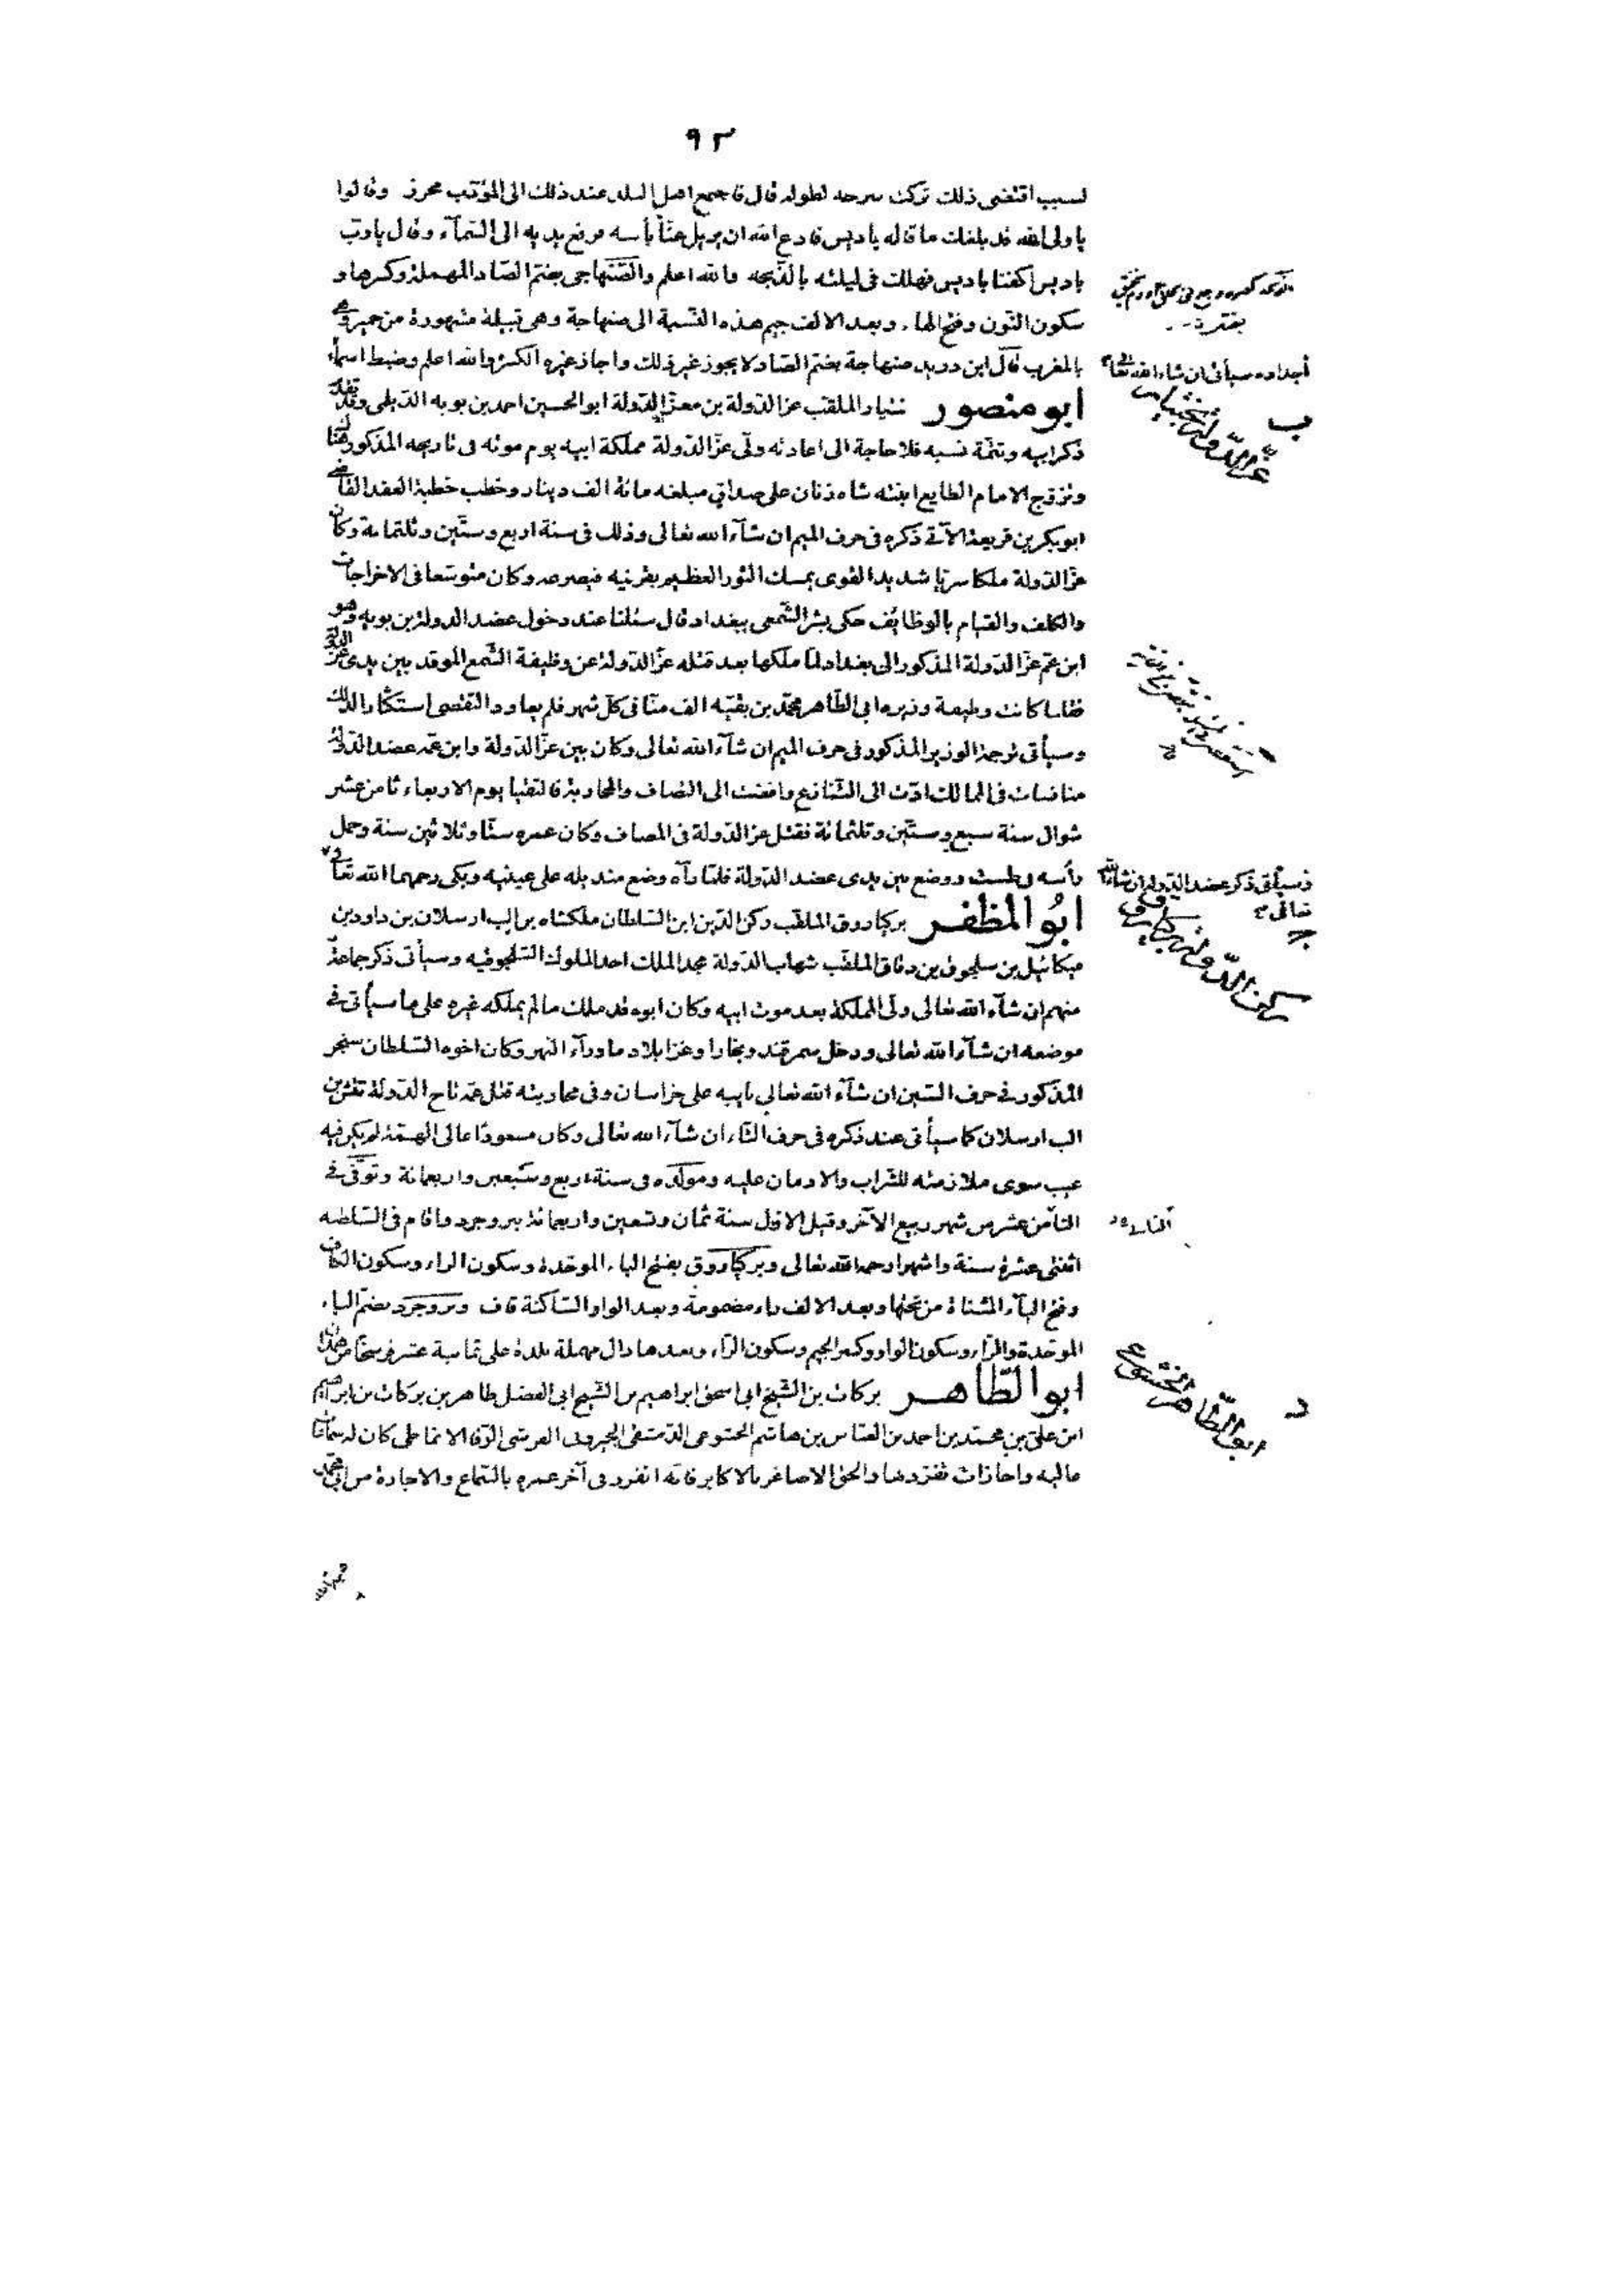 ٩٣
لسبب اقتضى ذلك تركت شرحه لطوله قال فاجمع اهل البلد عند ذلك الى المؤدب محرز وقالوا
يا ولى الله قد بلغك ما قاله باديس فادع الله ان يزيل عنّا بأسه فرفع يديه الى السّمآء وقال يا ربّ
باديس اكفنا باديس فهلك فى ليلته بالذّبحه والله اعلم والصّنهاجى بضمّ الصّاد المهملة وكسرها و
سكون النّون وفتح الهاء وبعد الالف جيم هذه النّسبة الى صنهاجة وهى قبيلة مشهورة من حمير وهى
بالمغرب قال ابن دريد صنهاجة بضمّ الصّاد لا يجوز غير ذلك واجاز غيره الكسر والله اعلم وضبط اسمآء
أجداده سيأتى ان شاء الله تعالى
ب
عزّ الدّولة بختيار
أبو منصور بختيار الملقب عز الدّولة بن معزّ الدّولة ابو الحسين احمد بن بويه الدّيلمى وقد تقدّم
ذكر ابيه وتتمّة نسبه فلا حاجة الى اعادته ولّى عزّ الدّولة مملكة ابيه يوم موته فى تاريخه المذكور هناك
وتزوّج الامام الطايع ابنته شاه زنان على صداق مبلغه مائة الف دينار وخطب خطبة العقد القاضى
ابو بكر بن قريعة الآتى ذكره فى حرف الميم ان شآء الله تعالى وذلك فى سنة اربع وستّين وثلثمائة وكان
عزّ الدّولة ملكا سريّا شديد القوى يمسك الثور العظيم بقرنيه فيصرعه وكان متوسّعا فى الاخراجات
والكلف والقيام بالوظائف حكى بشر الشّمعى ببغداد قال سئلنا عند دخول عضد الدولة بن بويه وهو
ابن عمّ عزّ الدّولة المذكور الى بغداد لمّا ملكها بعد قتله عزّ الدّولة عن وظيفة الشّمع الموقد بين يدى عزّ الدّولة
فقلنا كانت وظيفة وزيره ابى الطّاهر محمّد بن بقيّه الف منّا فى كلّ شهر فلم يعاود التّقصى استكثارا لذلك
وسيأتى ترجمة الوزير المذكور فى حرف الميم ان شآء الله تعالى وكان بين عزّ الدّولة وابن عمّه عضد الدّولة
منافسات فى الممالك ادّت الى التّنازع وافضت الى التصاف والمحاربة فالتقيا يوم الاربعاء ثامن عشر
شوال سنة سبع وستّين وثلثمائة فقتل عز الدّولة فى المصاف وكان عمره ستّا وثلاثين سنة وحمل
رأسه فى طست ووضع بين يدى عضد الدّولة فلمّا رآه وضع منديله على عينيه وبكى رحمهما الله تعالى
وسيأتى ذكر عضد الدّولة ان شاء الله
تعالى
ج
ركن الدّولة بركياروق
ابُو المظفر بركياروق الملقب ركن الدّين ابن السّلطان ملكشاه بن الب ارسلان بن داود بن
ميكائيل بن سلجوق بن دقاق الملقب شهاب الدّولة مجد الملك احد الملوك السّلجوقيه وسيأتى ذكر جماعة
منهم ان شآء الله تعالى ولّى المملكة بعد موت ابيه وكان ابوه قد ملك ما لم يملكه غيره على ما سيأتى فى
موضعه ان شآء الله تعالى ودخل سمرقند وبخارا وغزا بلاد ماورآء النهر وكان اخوه السّلطان سنجر
المذكور فى حرف السّين ان شآء الله تعالى نايبه على خراسان وفى محاربته قتل عمّه تاج الدّولة تتش بن
الب ارسلان كما سيأتى عند ذكره فى حرف التّاء ان شآء الله تعالى وكان مسعودا عالى الهمّة لم يكن فيه
عيب سوى ملازمته للشراب والادمان عليه ومولده فى سنة اربع وسبعين واربعمائة وتوّفى فى
الثامن عشر من شهر ربيع الآخر وقيل الاوّل سنة ثمان وتسعين واربعمائة ببروجرد واقام فى السّلطنه
اثنتى عشرة سنة واشهرا رحمه الله تعالى وبركياروق بفتح الباء الموحّدة وسكون الراء وسكون الكاف
وفتح اليآء المثناة من تحتها وبعد الالف راء مضمومة وبعد الواو السّاكنة قاف وبروجرد بضمّ الباء
الموحّدة والرّاء وسكون الواو وكسر الجيم وسكون الرّاء وبعدها دال مهملة بلدة على ثمانية عشر فرسخا من همذان
د
ابو الطّاهر الخشوعى
ابو الطّاهر بركات بن الشّيخ ابى اسحق ابراهيم بن الشّيخ ابى الفضل طاهر بن بركات بن ابراهيم
ابن على بن محمّد بن احمد بن العبّاس بن هاشم الخشوعى الدّمشقى الجيرونى الفرشى الرّفا الانماطى كان له سماعات
عاليه واجازات تفرّد بها والحق الاصاغر بالاكابر فانّه انفرد فى آخر عمره بالسّماع والاجازة من ابى محمّد